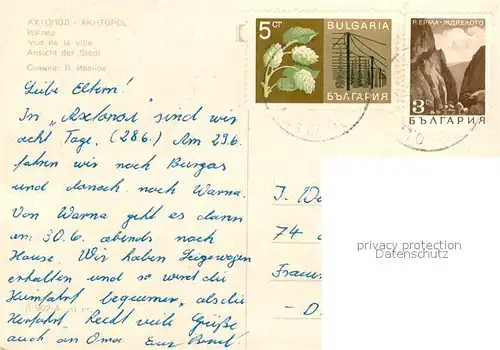 АХТОПОЛ - AKHTOPOL
Изглед
Vue de la ville
Ansicht der Stadt
Снимка: В. Иванов
5 СТ
BULGARIA
БЪЛГАРИЯ
Р. ЕРМА - ЖДРЕЛОТО
3
БЪЛГАРИЯ
Liebe Eltern!
In „Ахтопол" sind wir
acht Tage. (28.6.) Am 29.6.
fahren wir nach Burgas
und danach nach Warna.
Von Warna geht es dann
am 30.6. abends nach
Hause. Wir haben Liegewagen
erhalten und so wird die
Heimfahrt bequemer, als die
Herfahrt. Recht viele Grüße
auch an Oma. Eur
74
Frau
- D
privacy protection
Datenschutz